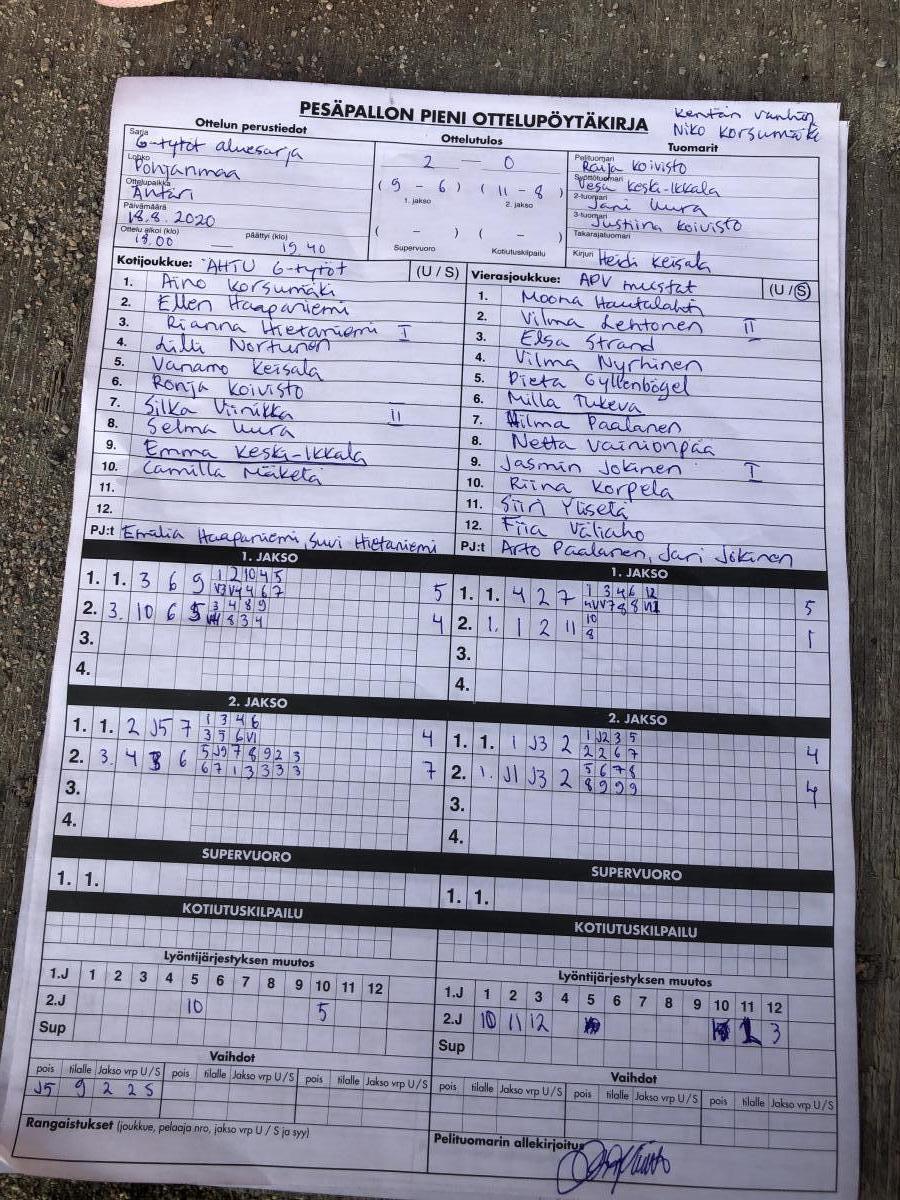 PESÄPALLON PIENI OTTELUPÖYTÄKIRJA
Kentän vanhin
Niko Korsumäki
Ottelun perustiedot
Ottelutulos
Tuomarit
Sarja
G-tytöt aluesarja
Lohko
Pohjanmaa
Ottelupaikka
Ähtäri
Päivämäärä
18.8.2020
Ottelu alkoi (klo) päättyi (klo)
18.00 — 19.40
2 — 0
( 9 - 6 ) ( 11 - 8 )
1. jakso 2. jakso
( - ) ( - )
Supervuoro Kotiutuskilpailu
Pelituomari
Raija Koivisto
Syöttötuomari
Vesa Keski-Ikkala
2-tuomari
Jani Uura
3-tuomari
Justiina Koivisto
Takarajatuomari
Kirjuri Heidi Keisala
Kotijoukkue: ÄHTU G-tytöt (U / S)
1. Aino Korsumäki
2. Ellen Haapaniemi
3. Rianna Hietaniemi I
4. Lilli Nortunen
5. Vanamo Keisala
6. Ronja Koivisto
7. Silka Viinikka II
8. Selma Uura
9. Emma Keski-Ikkala
10. Camilla Mäkelä
11.
12.
PJ:t Emilia Haapaniemi, Suvi Hietaniemi
Vierasjoukkue: APV mustat (U / S)
1. Moona Hautalahti
2. Vilma Lehtonen II
3. Elsa Strand
4. Vilma Nyrhinen
5. Pieta Gyllenbögel
6. Milla Tukeva
7. Hilma Paalanen
8. Netta Vainionpää
9. Jasmin Jokinen I
10. Riina Korpela
11. Siiri Yliselä
12. Fiia Väliaho
PJ:t Arto Paalanen, Jari Jokinen
1. JAKSO
1. 1. 3 6 9 1 2 10 4 5 5
4 6 7
2. 3. 10 6 5 3 4 8 9 4
8 3 4
3.
4.
1. JAKSO
1. 1. 4 2 7 1 3 4 6 12 5
2. 1. 1 2 11 10 1
8
3.
4.
2. JAKSO
1. 1. 2 J5 7 1 3 4 6 4
3 5 6 VI
2. 3. 4 6 5 J9 7 8 9 2 3 7
6 7 1 3 3 3 3
3.
4.
2. JAKSO
1. 1. 1 J3 2 1 J2 3 5 4
2 2 6 7
2. 1. J1 J3 2 5 6 7 8 4
8 9 9 9
3.
4.
SUPERVUORO
1. 1.
SUPERVUORO
1. 1.
KOTIUTUSKILPAILU
KOTIUTUSKILPAILU
Lyöntijärjestyksen muutos
1.J 1 2 3 4 5 6 7 8 9 10 11 12
2.J 10 5
Sup
Lyöntijärjestyksen muutos
1.J 1 2 3 4 5 6 7 8 9 10 11 12
2.J 10 11 12 1 3
Sup
Vaihdot
pois tilalle Jakso vrp U / S pois tilalle Jakso vrp U / S pois tilalle Jakso vrp U / S
J5 9 2 2 S
Vaihdot
pois tilalle Jakso vrp U / S pois tilalle Jakso vrp U / S pois tilalle Jakso vrp U / S
Rangaistukset (joukkue, pelaaja nro, jakso vrp U / S ja syy)
Pelituomarin allekirjoitus